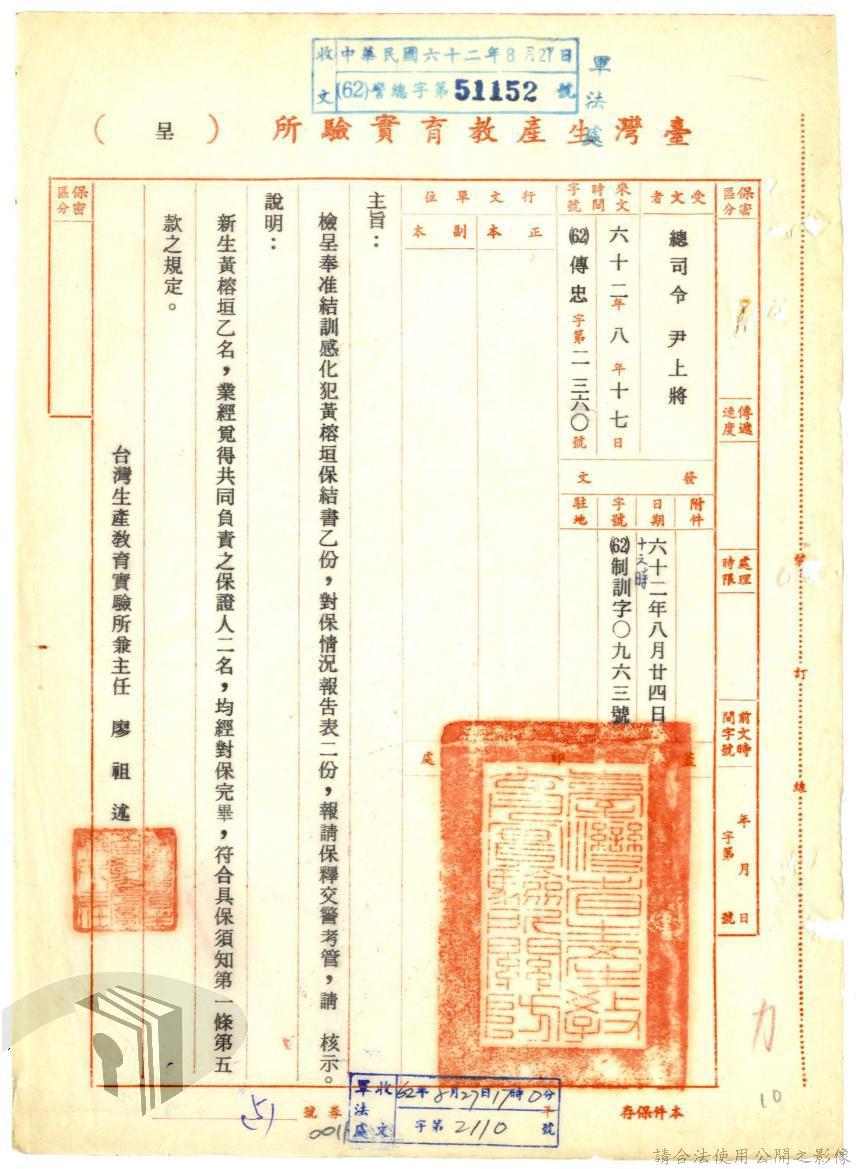 收文
中華民國六十二年8月27日
(62)警總字第51152號
軍法處
臺灣生產教育實驗所（呈）
保密區分
傳遞速度
處理時限
前文時間字號
年 月 日
字第 號
受文者
總司令 尹上將
來文時間字號
六十二年八年十七日
(62)傳忠字第二三六〇號
行文單位
正本
副本
發文
附件
日期
六十二年八月廿四日
十二時
字號
(62)制訓字〇九六三號
駐地
蓋印處
主旨：
檢呈奉准結訓感化犯黃榕垣保結書乙份，對保情況報告表二份，報請保釋交警考管，請 核示。
說明：
新生黃榕垣乙名，業經覓得共同負責之保證人二名，均經對保完畢，符合具保須知第一條第五
款之規定。
台灣生產教育實驗所兼主任 廖祖述
保密區分
裝訂線
軍法處
收文
62年8月27日17時0分
字第2110號
本件保存
年
券號
51
001
10
請合法使用公開之影像